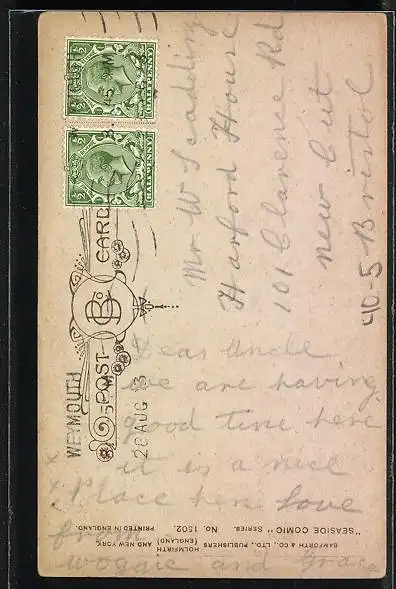 WEYMOUTH
28 AUG
POST CARD
HALFPENNY
HALFPENNY
Mr W Scadding
Harford House
101 Clarence Rd
New Cut
Bristol
40-5
Dear Uncle
we are having
good time here
it is a nice
Place here Love
from
woggie and Grace
x
x
"SEASIDE COMIC" SERIES. No. 1502.
PRINTED IN ENGLAND.
BAMFORTH & CO., LTD., PUBLISHERS
HOLMFIRTH (ENGLAND) AND NEW YORK